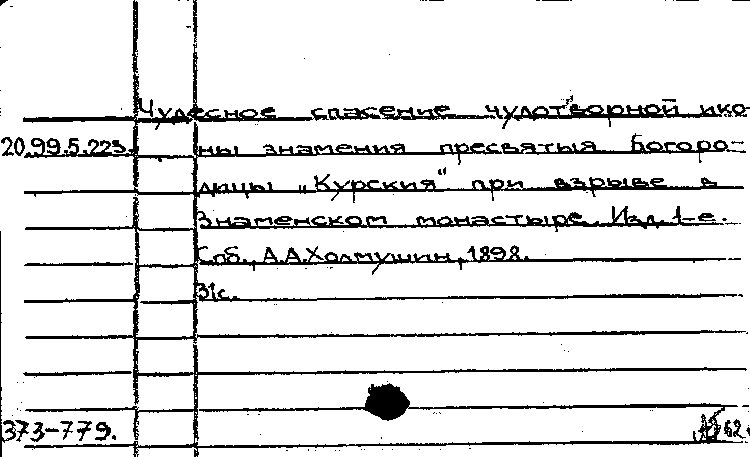 Чудесное спасение чудотворной ико-
20.99.5.223. ны знамения пресвятыя Богоро-
дицы „Курския" при взрыве в
Знаменском монастыре. Изд. 1-е.
Спб., А.А.Холмушин, 1898.
31с.
373-779. 62